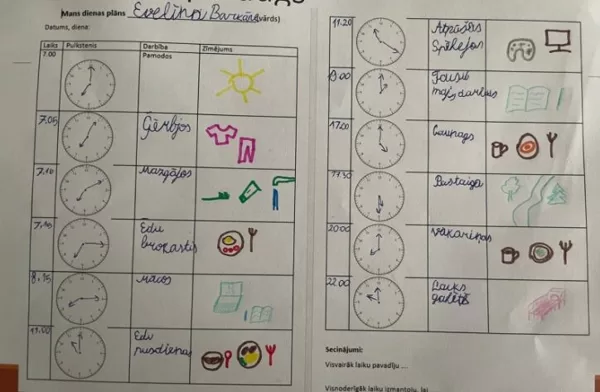 Mans dienas plāns Evelīna
vārds)
Datums, diena:
Laiks Pulkstenis Darbība Zīmējums
7.00 Pamodos
7.05 Ģērbjos
7.10 Mazgājos
Ēdu
brokastis
8.15 Mācos
Ēdu
pusdienas
11.20 Atpūšos
Spēlējos
mājsdarbus
17.20 Launags
Pastaiga
20.00 Vakariņas
22.00 Laiks
gulēt
Secinājumi:
Visvairāk laiku pavadīju ...
Visnoderīgāk laiku izmantoju, lai